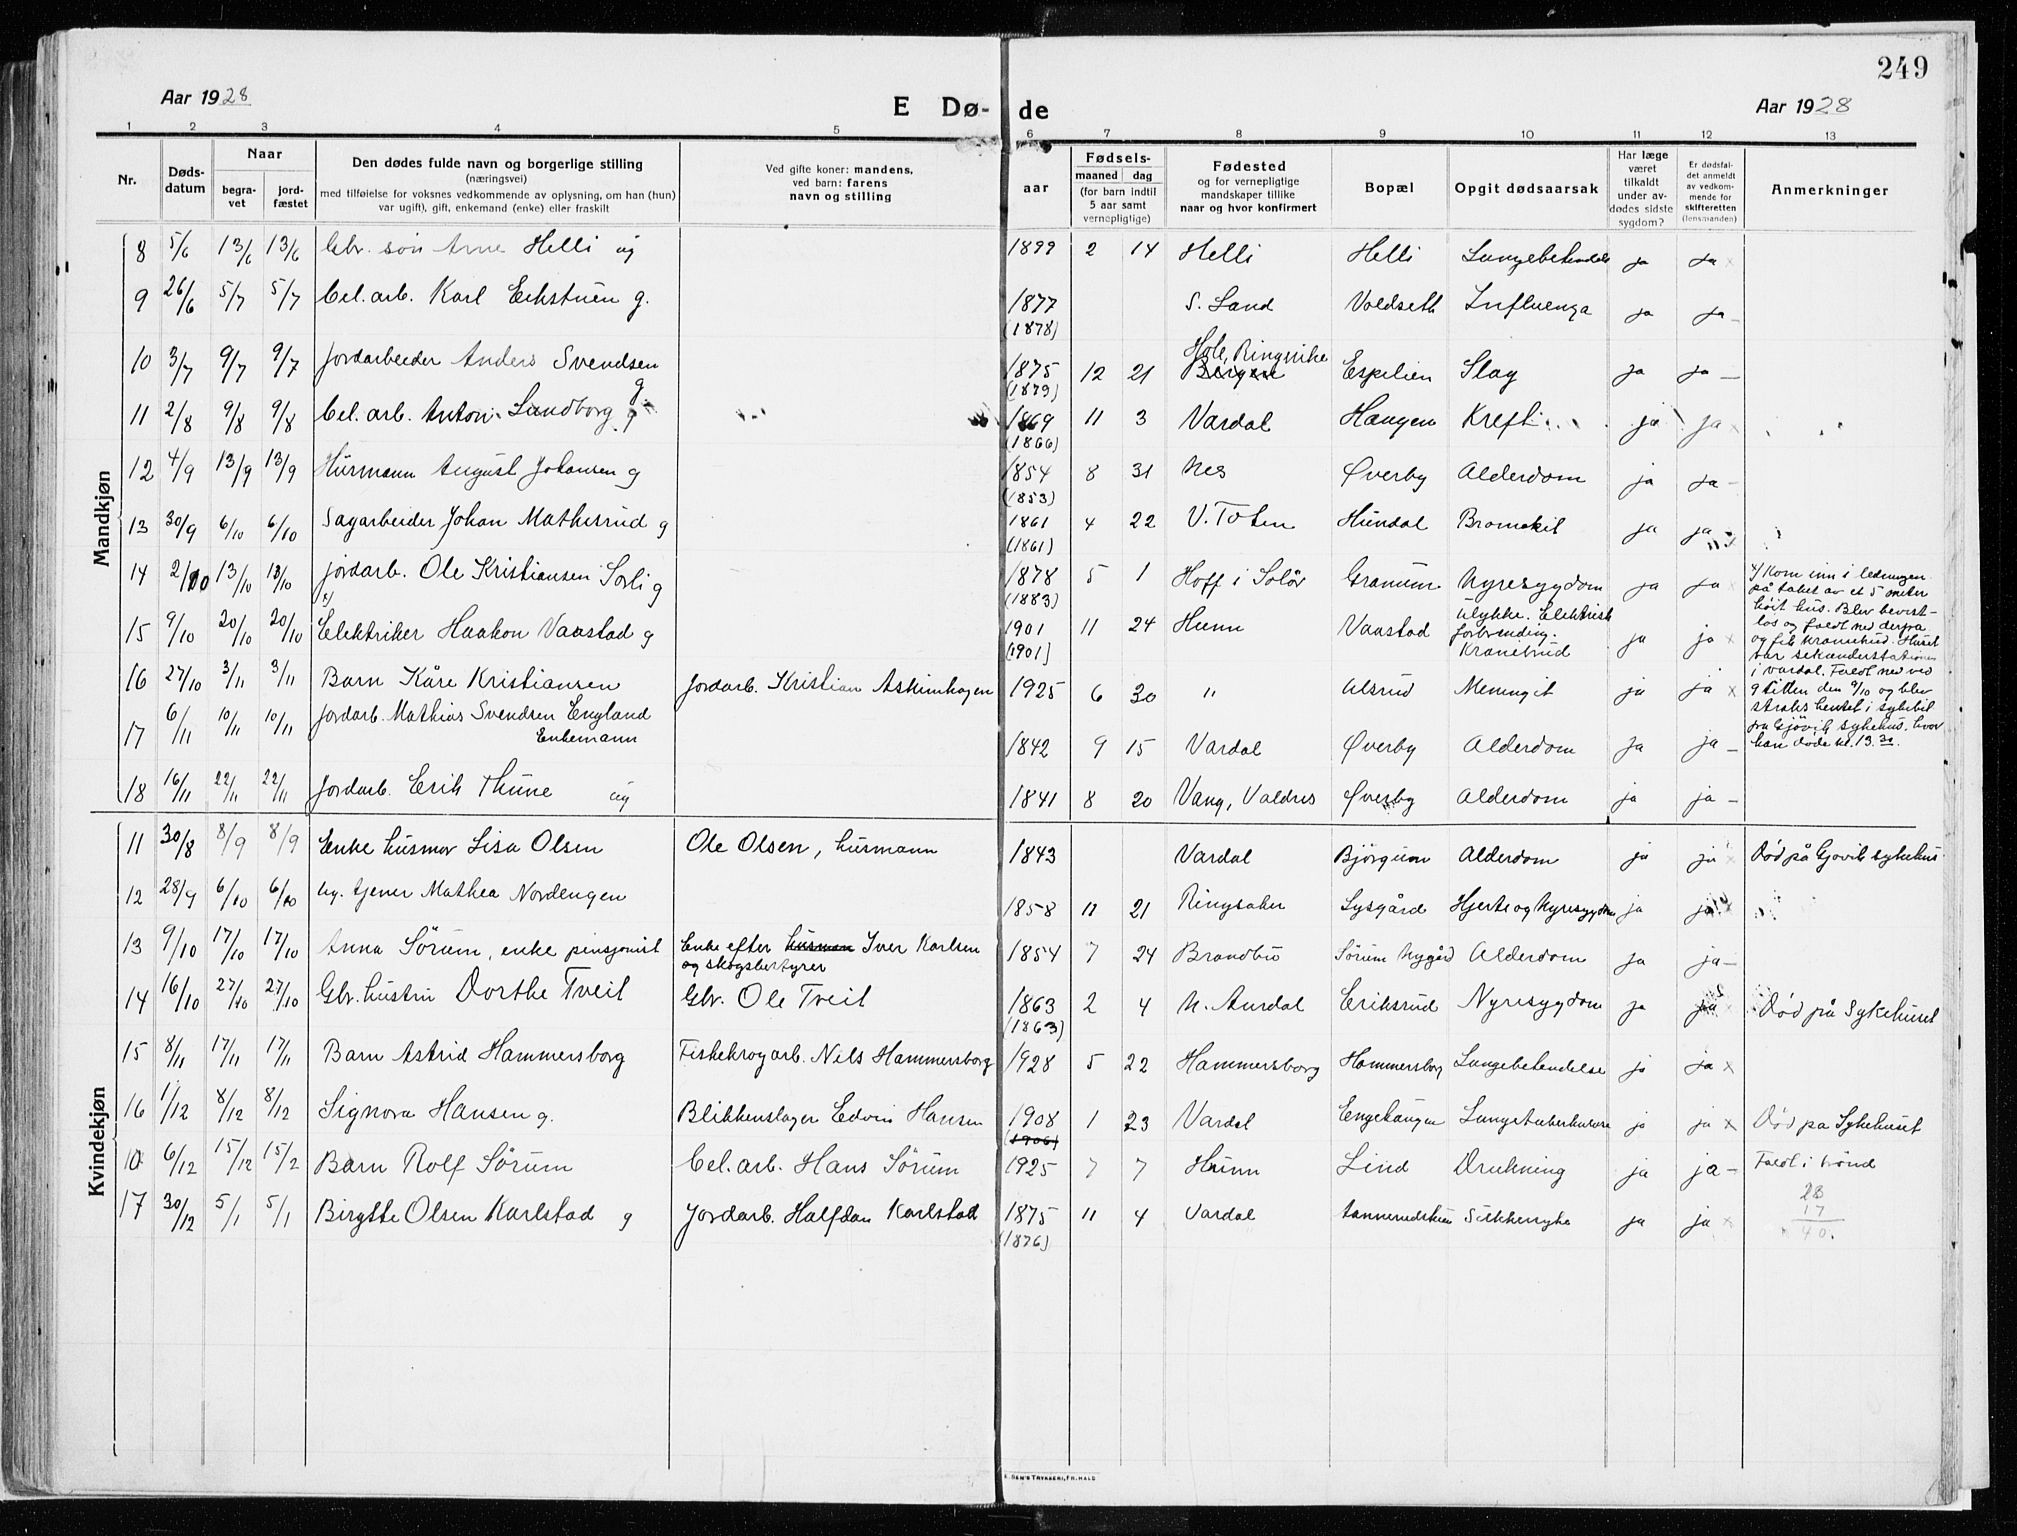 249
Aar 1928
E Dø-
de
Aar 1928
1 2 3 4 5 6 7 8 9 10 11 12 13
Nr.
Døds-
datum
Naar
begra-
vet
jord-
fæstet
Den dødes fulde navn og borgerlige stilling
(næringsvei)
med tilføielse for voksnes vedkommende av oplysning, om han (hun)
var ugift), gift, enkemand (enke) eller fraskilt
Ved gifte koner: mandens,
ved barn: farens
navn og stilling
aar
Fødsels-
maaned dag
(for barn indtil
5 aar samt
vernepligtige)
Fødested
og for vernepligtige
mandskaper tillike
naar og hvor konfirmert
Bopæl
Opgit dødsaarsak
Har læge
været
tilkaldt
under av-
dødes sidste
sygdom?
Er dødsfal-
det anmeldt
av vedkom-
mende for
skifteretten
(lensmanden)
Anmerkninger
Mandkjøn
8 5/6 13/6 13/6 Gbr. søn Arne Helli ug 1899 2 14 Helli Helli Lungebetendels ja ja x
9 26/6 5/7 5/7 Cel. arb. Karl Eekstuen g. 1877 S. Land Voldseth Influenza ja ja –
(1878)
10 3/7 9/7 9/7 Jordarbeider Anders Svendsen g 1875 12 21 Hole, Ringerike Espelien Slag ja ja –
(1879) Bergen
11 2/8 9/8 9/8 Cel. arb. Anton Lundborg g 1869 11 3 Vardal Haugen Kreft ja ja x
(1866)
12 4/9 13/9 13/9 Husmann August Johansen g 1854 8 31 Nes Øverby Alderdom ja ja –
(1853)
13 30/9 6/10 6/10 Sagarbeider Johan Mathisrud g 1861 4 22 V. Toten Hundal Bronekit ja ja
(1861)
14 2/10 13/10 13/10 Jordarb. Ole Kristiansen Sørli g 1878 5 1 Hoff i Solør Granum Nyresygdom ja ja x
(1883)
15 9/10 20/10 20/10 x/ Elektriker Haakon Vaastad g 1901 11 24 Hunn Vaastad Ulykke. Elektrisk ja ja x
(1901) forbrending.
Kranebrud
x/ Kom inn i ledningen
på taket av et 5 meter
høit hus. Blev bevist-
løs og faldt ned derfra
og fik kranebrud. Huset
var sekunderstationen
i Vardal. Faldt ned ved
9 tiden den 9/10 og blev
straks hentet i sykebil
fra Gjøvik sykehus, hvor
han døde kl. 13.30.
16 27/10 3/11 3/11 Barn Kåre Kristiansen Jordarb. Kristian Askimhagen 1925 6 30 " Ulsrud Meningit ja ja x
17 6/11 10/11 10/11 Jordarb. Mathias Svendsen Engeland 1842 9 15 Vardal Øverby Alderdom ja ja –
Enkemann
18 16/11 22/11 22/11 Jordarb. Erik Thune ug 1841 8 20 Vang, Valdres Øverby Alderdom ja ja –
Kvindekjøn
11 30/8 8/9 8/9 Enke husmor Lisa Olsen Ole Olsen, husmann 1843 Vardal Bjørgum Alderdom ja ja Død på Gjøvik sykehus
12 28/9 6/10 6/10 ug. tjener Mathea Nordengen 1858 11 21 Ringsaker Lysgård Hjerte og Nyresygdom ja ja
13 9/10 17/10 17/10 Anna Sørum, enke pensjonist Enke efter husman Iver Karlsen 1854 7 24 Brandbu Sørum Nygård Alderdom ja ja –
og skogsbestyrer
14 16/10 27/10 27/10 Gbr. hustru Dorthe Tveit Gbr. Ole Tveit 1863 2 4 N. Aurdal Eriksrud Nyresygdom ja ja Død på Sykehuset
(1863)
15 8/11 17/11 17/11 Barn Astrid Hammersborg Fiskekrogarb. Nils Hammersborg 1928 5 22 Hammersborg Hammersborg Lungebetendelse ja ja x
16 1/12 8/12 8/12 Signora Hansen g. Blikkenslager Edvin Hansen 1908 1 23 Vardal Engehaugen Lungetuberkulose ja ja x Død pa Sykehuset
(1906)
10 6/12 15/12 15/2 Barn Rolf Sørum Cel. arb. Hans Sørum 1925 7 7 Hunn Lind Drukning ja ja – Faldt i brønd
17 30/12 5/1 5/1 Birgitte Olsen Karlstad g Jordarb. Halfdan Karlstad 1875 11 4 Vardal Sukkersyke ja ja x
(1876)
23
17
40.